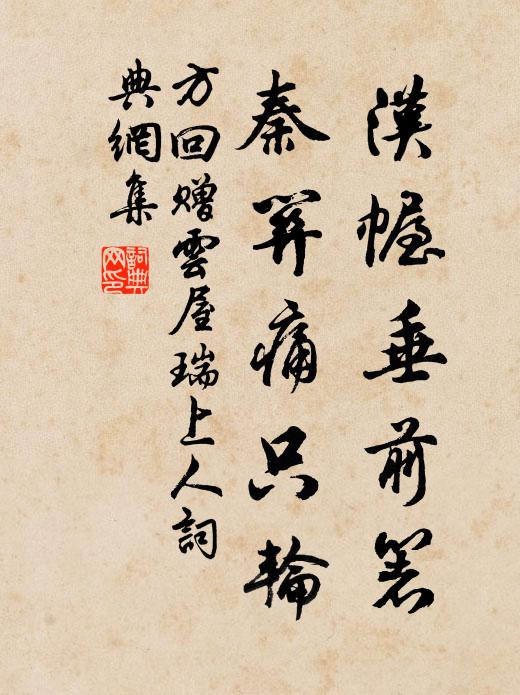 漢幄垂前箸
秦痛只輪
方回贈雲屋瑞上人詞
典網集
詞典網印